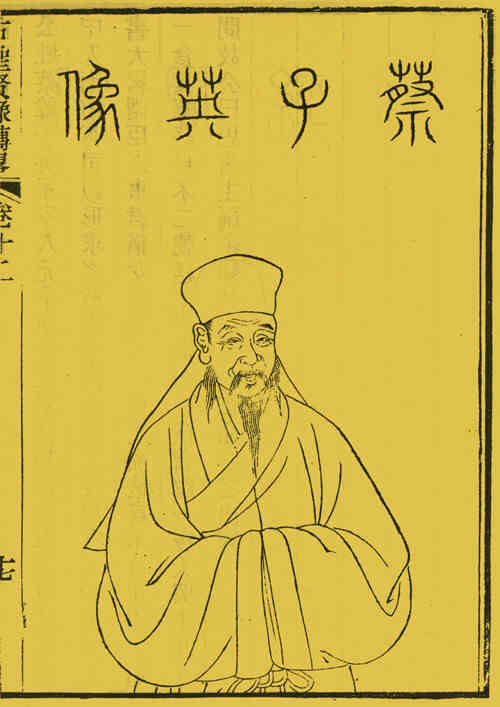 蔡子英像
古聖賢像傳畧
卷十二
十七